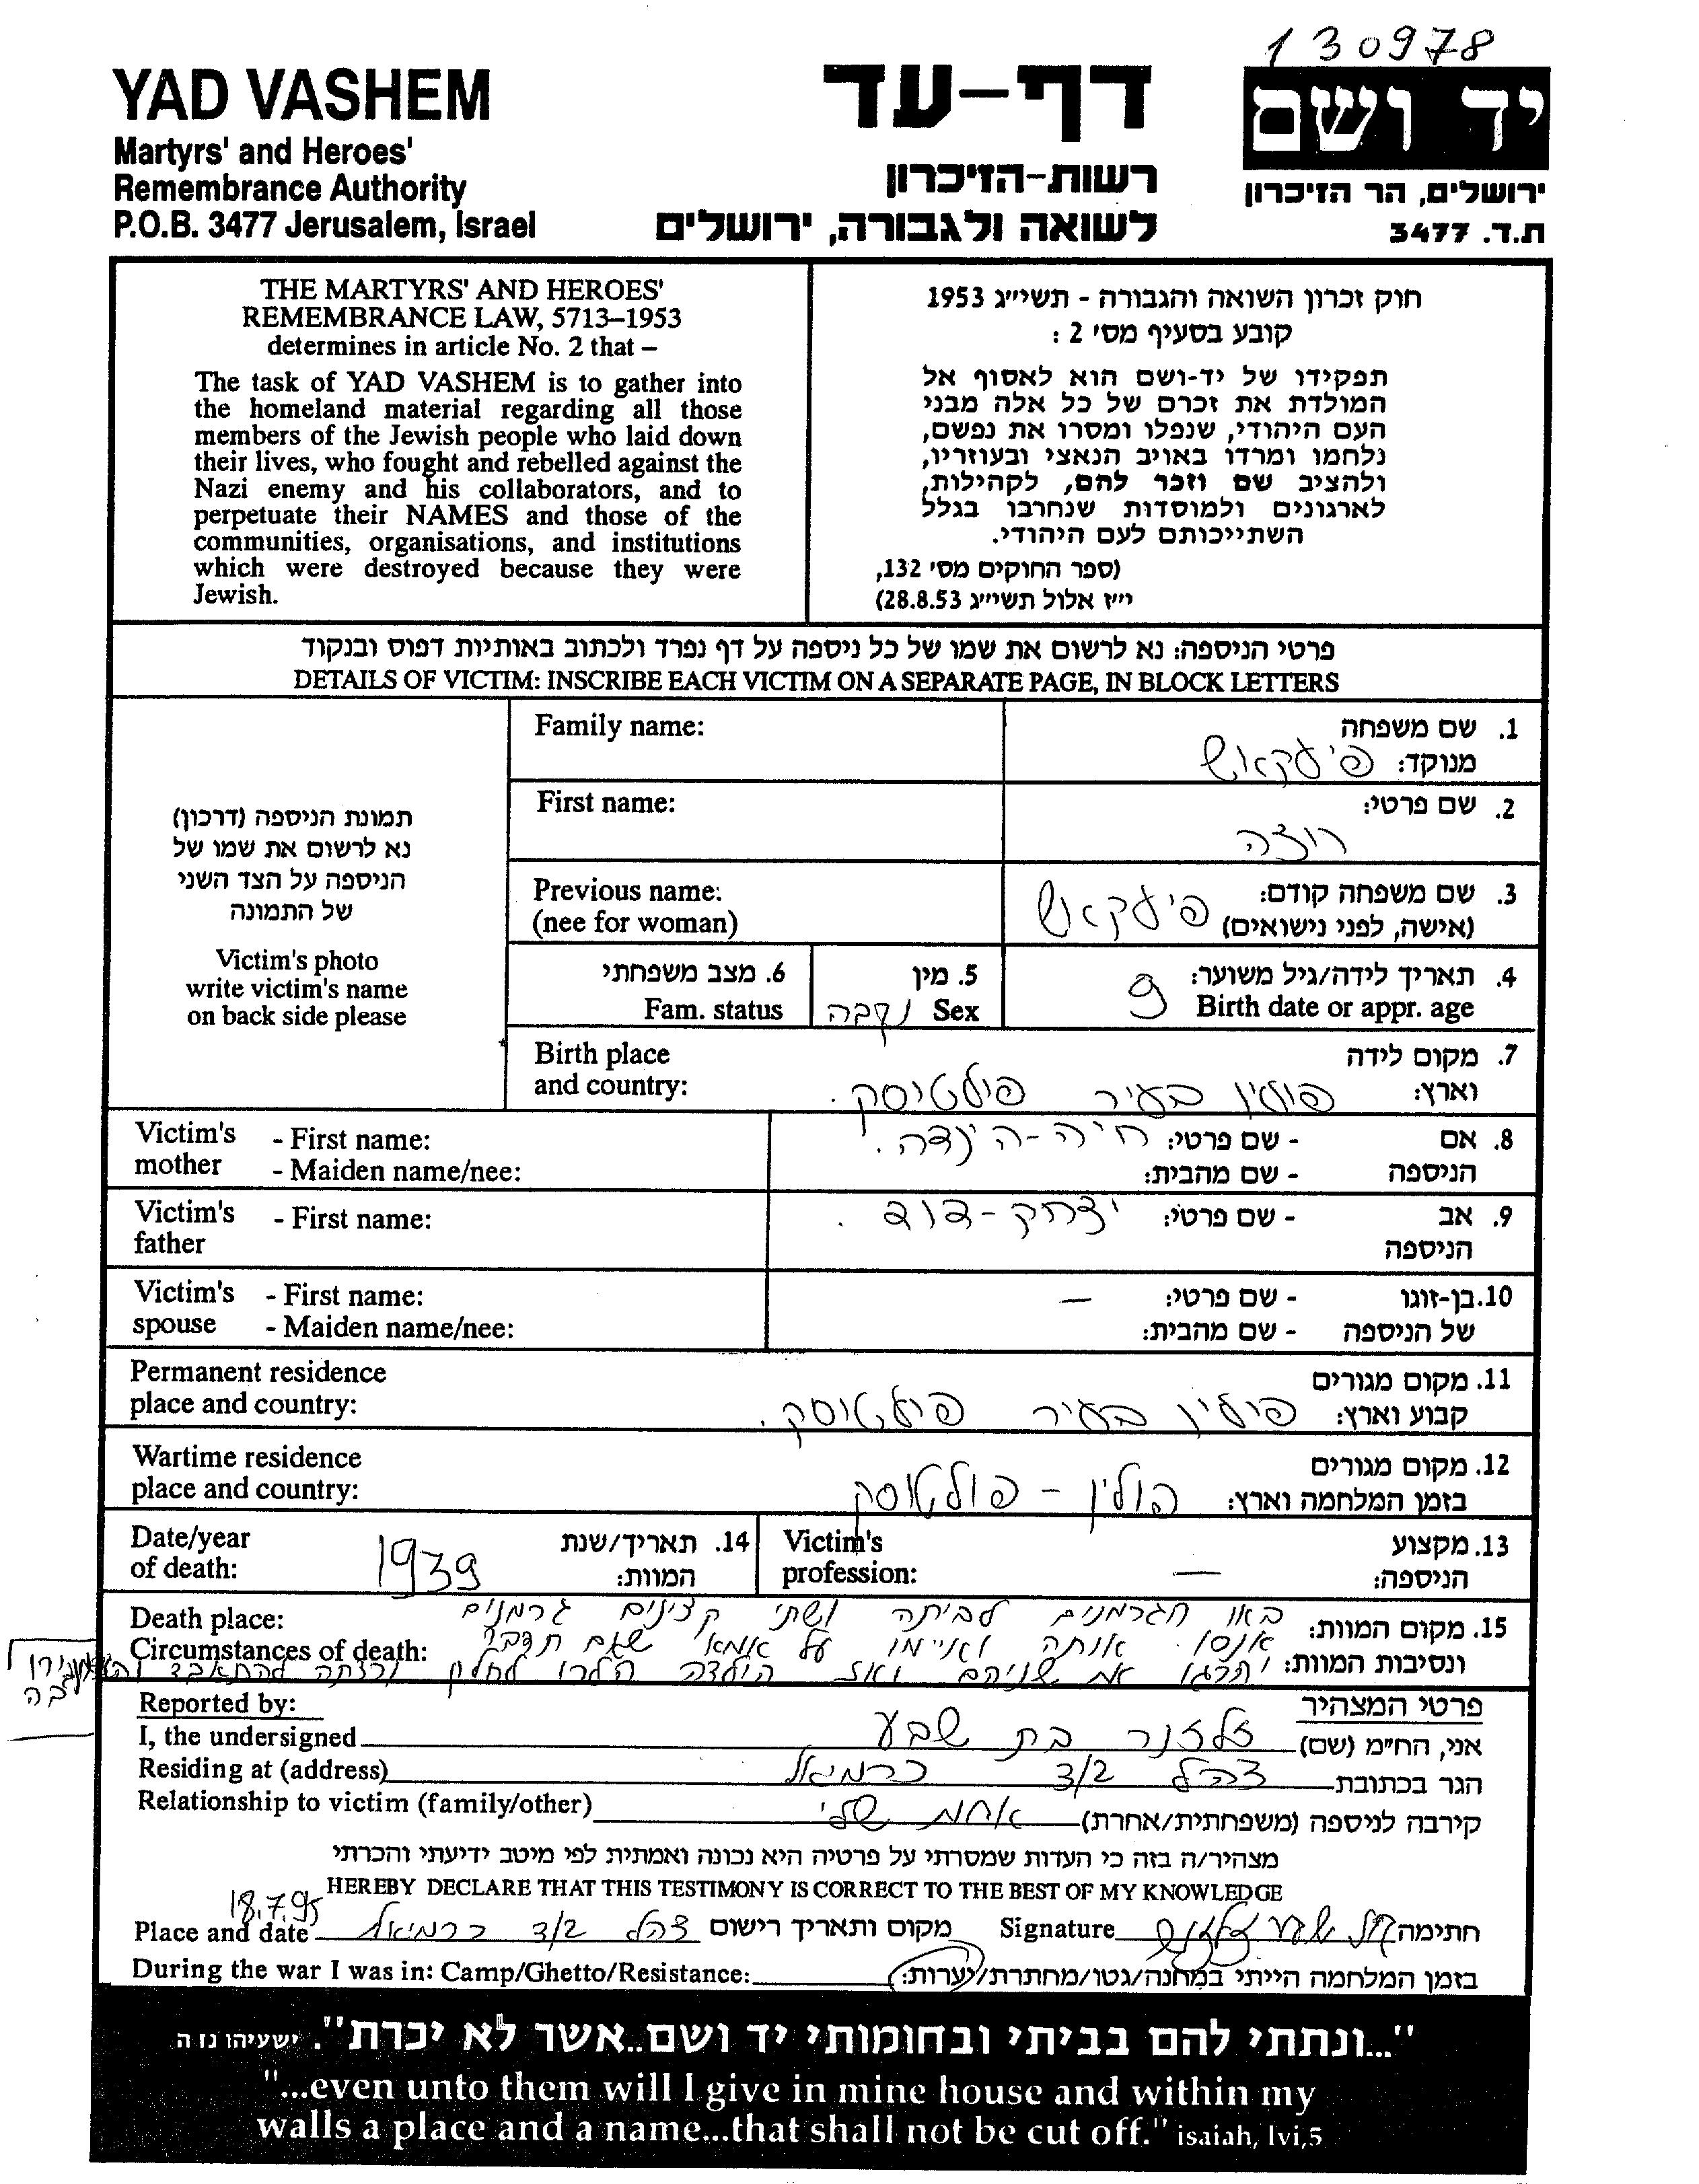 130978
YAD VASHEM
Martyrs' and Heroes'
Remembrance Authority
P.O.B. 3477 Jerusalem, Israel
דף-עד
רשות-הזיכרון
לשואה ולגבורה, ירושלים
יד ושם
ירושלים, הר הזיכרון
ת.ד. 3477
THE MARTYRS' AND HEROES'
REMEMBRANCE LAW, 5713–1953
determines in article No. 2 that –
The task of YAD VASHEM is to gather into
the homeland material regarding all those
members of the Jewish people who laid down
their lives, who fought and rebelled against the
Nazi enemy and his collaborators, and to
perpetuate their NAMES and those of the
communities, organisations, and institutions
which were destroyed because they were
Jewish.
חוק זכרון השואה והגבורה - תשי״ג 1953
קובע בסעיף מס׳ 2 :
תפקידו של יד-ושם הוא לאסוף אל
המולדת את זכרם של כל אלה מבני
העם היהודי, שנפלו ומסרו את נפשם,
נלחמו ומרדו באויב הנאצי ובעוזריו,
ולהציב שם וזכר להם, לקהילות,
לארגונים ולמוסדות שנחרבו בגלל
השתייכותם לעם היהודי.
(ספר החוקים מס׳ 132,
י״ז אלול תשי״ג 28.8.53)
פרטי הניספה: נא לרשום את שמו של כל ניספה על דף נפרד ולכתוב באותיות דפוס ובנקוד
DETAILS OF VICTIM: INSCRIBE EACH VICTIM ON A SEPARATE PAGE, IN BLOCK LETTERS
תמונת הניספה (דרכון)
נא לרשום את שמו של
הניספה על הצד השני
של התמונה
Victim's photo
write victim's name
on back side please
Family name:
1. שם משפחה
מנוקד: פיעקאש
First name:
2. שם פרטי:
רוצה
Previous name:
(nee for woman)
3. שם משפחה קודם:
(אישה, לפני נישואים) פיעקאש
4. תאריך לידה/גיל משוער:
Birth date or appr. age 9
5. מין
Sex נקבה
6. מצב משפחתי
Fam. status
Birth place
and country:
7. מקום לידה
וארץ: פולין בעיר פולטוסק.
Victim's mother - First name:
- Maiden name/nee:
8. אם הניספה - שם פרטי: חיה-הינדה.
- שם מהבית:
Victim's father - First name:
9. אב הניספה - שם פרטי: יצחק-דוד.
Victim's spouse - First name:
- Maiden name/nee:
10. בן-זוגו של הניספה - שם פרטי: —
- שם מהבית:
Permanent residence
place and country:
11. מקום מגורים
קבוע וארץ: פולין בעיר פולטוסק.
Wartime residence
place and country:
12. מקום מגורים
בזמן המלחמה וארץ: פולין - פולטוסק
13. מקצוע
הניספה: —
Victim's
profession:
14. תאריך/שנת
המוות:
Date/year
of death: 1939
Death place:
Circumstances of death:
15. מקום המוות:
ונסיבות המוות:
באו הגרמנים לביתה ושתי קצינים גרמנים
אנסו אותה ואיימו על אמא שאם תדבר
יהרגו את שניהם ואז הילדה הלכה לחלון ורצתה להתאבד
Reported by:
פרטי המצהיר
I, the undersigned
אני, הח״מ (שם) זלזנר בת שבע
Residing at (address)
הגר בכתובת צהל 3/2 כרמיאל
Relationship to victim (family/other)
קירבה לניספה (משפחתית/אחרת) אחות שלי
מצהיר/ה בזה כי העדות שמסרתי על פרטיה היא נכונה ואמתית לפי מיטב ידיעתי והכרתי
HEREBY DECLARE THAT THIS TESTIMONY IS CORRECT TO THE BEST OF MY KNOWLEDGE
18.7.95
Place and date
מקום ותאריך רישום צהל 3/2 כרמיאל
Signature
חתימה
During the war I was in: Camp/Ghetto/Resistance:
בזמן המלחמה הייתי במחנה/גטו/מחתרת/יערות:
"...ונתתי להם בביתי ובחומותי יד ושם..אשר לא יכרת". ישעיהו נז ה
"...even unto them will I give in mine house and within my
walls a place and a name...that shall not be cut off." isaiah, lvi,5